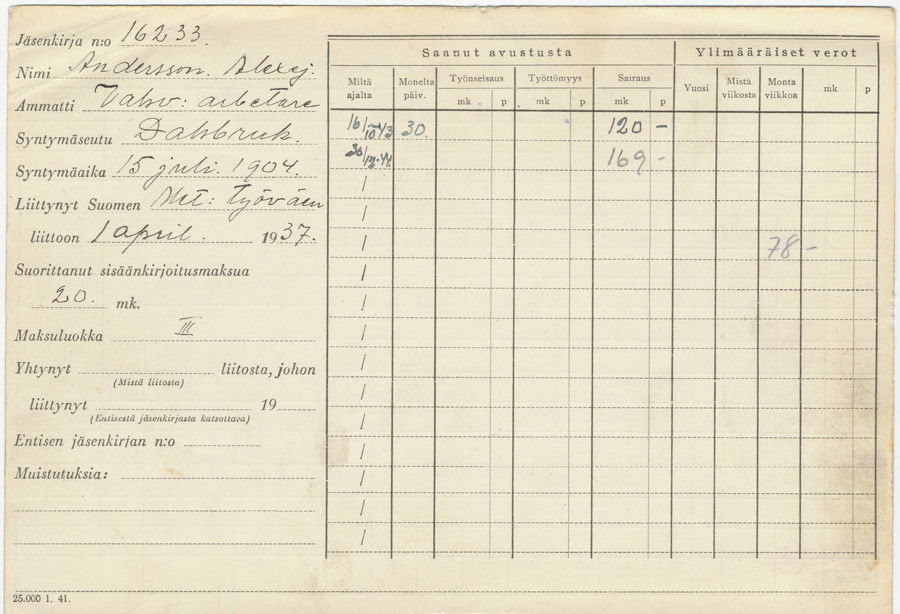 Jäsenkirja n:o 16233.
Nimi Andersson. Alexej.
Ammatti Valsv: arbetare
Syntymäseutu Dalsbruk.
Syntymäaika 15 juli. 1904.
Liittynyt Suomen Met: Työväen
liittoon 1 april. 1937.
Suorittanut sisäänkirjoitusmaksua
20. mk.
Maksuluokka III
Yhtynyt liitosta, johon
(Mistä liitosta)
liittynyt 19
(Entisestä jäsenkirjasta katsottava)
Entisen jäsenkirjan n:o
Muistutuksia:
25.000 1. 41.
Saanut avustusta Ylimääräiset verot
Miltä ajalta Monelta päiv. Työnseisaus Työttömyys Sairaus Vuosi Mistä viikosta Monta viikkoa mk p
mk p mk p mk p
16/10 43 30. 120 -
30/12-44 169 -
78 -